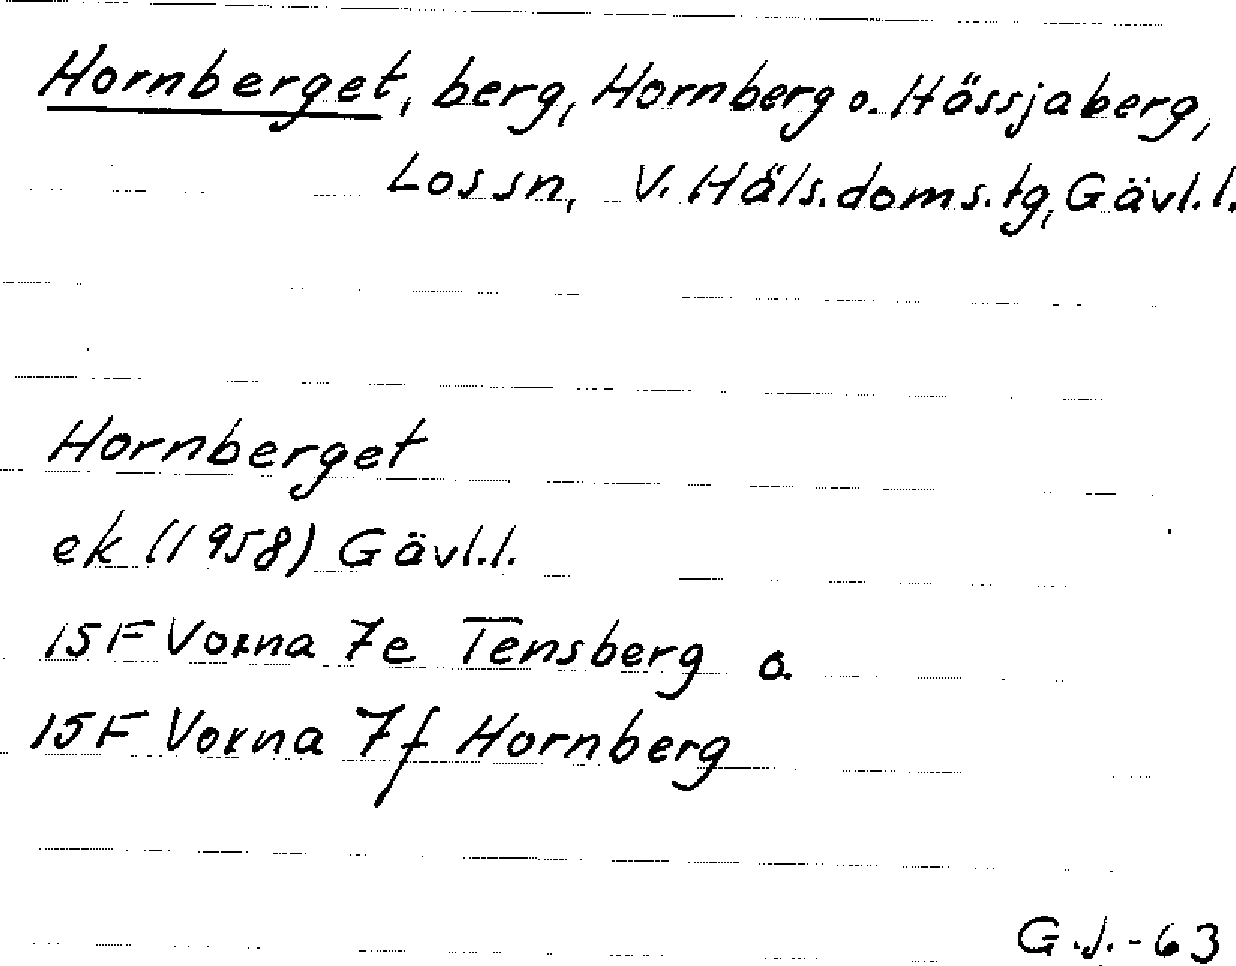 Hornberget, berg, Hornberg o. Hässjaberg,
Lossn, V. Häls. doms. tg, Gävl. l.
Hornberget
ek (1958) Gävl. l.
15F Voxna 7e Tensberg o.
15F Voxna 7f Hornberg
G.J.-63